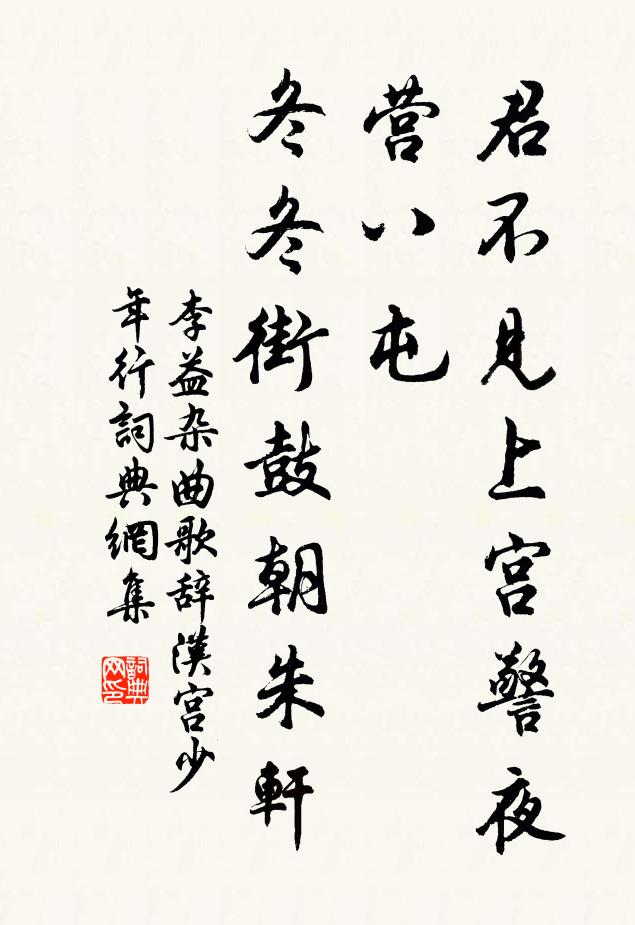 君不见上宫警夜
营八屯
冬冬街鼓朝朱軒
李益杂曲歌辞漢宫少
年行詞典網集
詞典
网印